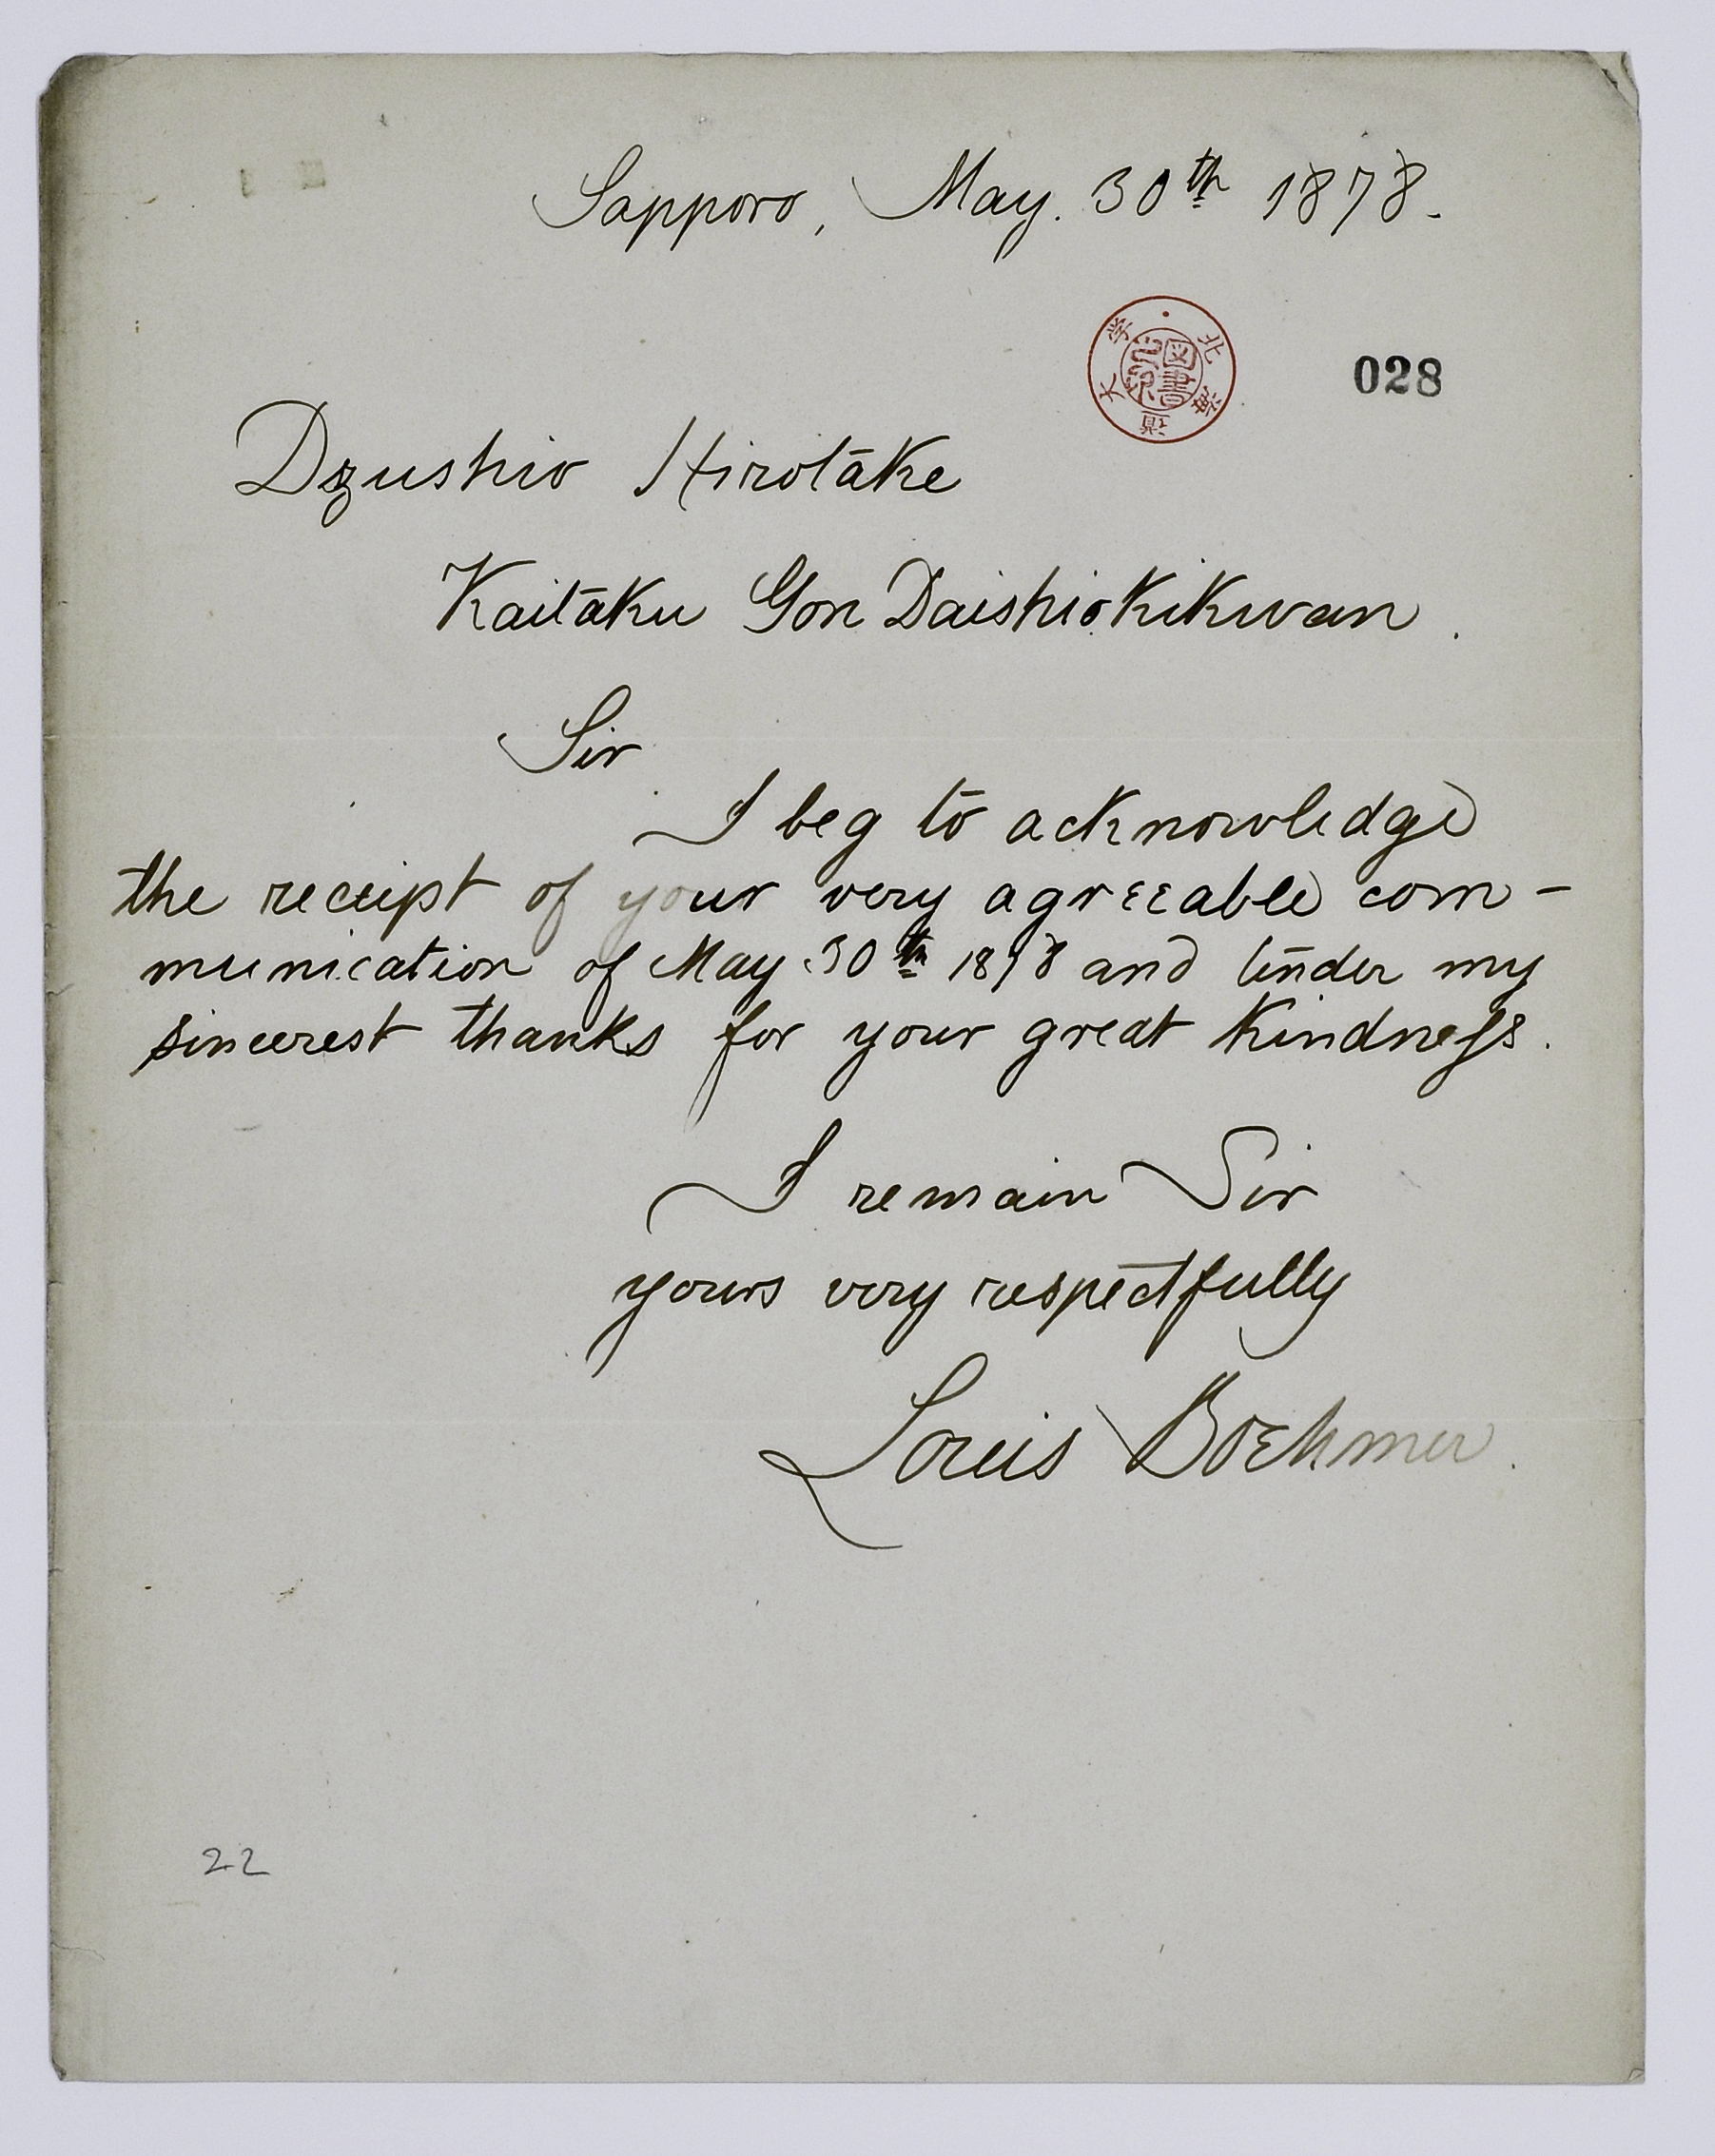 Sapporo, May. 30th 1878.
北海道大学
図書之印
028
Dzushio Hirotake
Kaitaku Gon Daishiokikwan.
Sir
I beg to acknowledge
the receipt of your very agreeable com-
munication of May 30th 1878 and tender my
sincerest thanks for your great Kindness.
I remain Sir
yours very respectfully
Louis Boehmer.
22